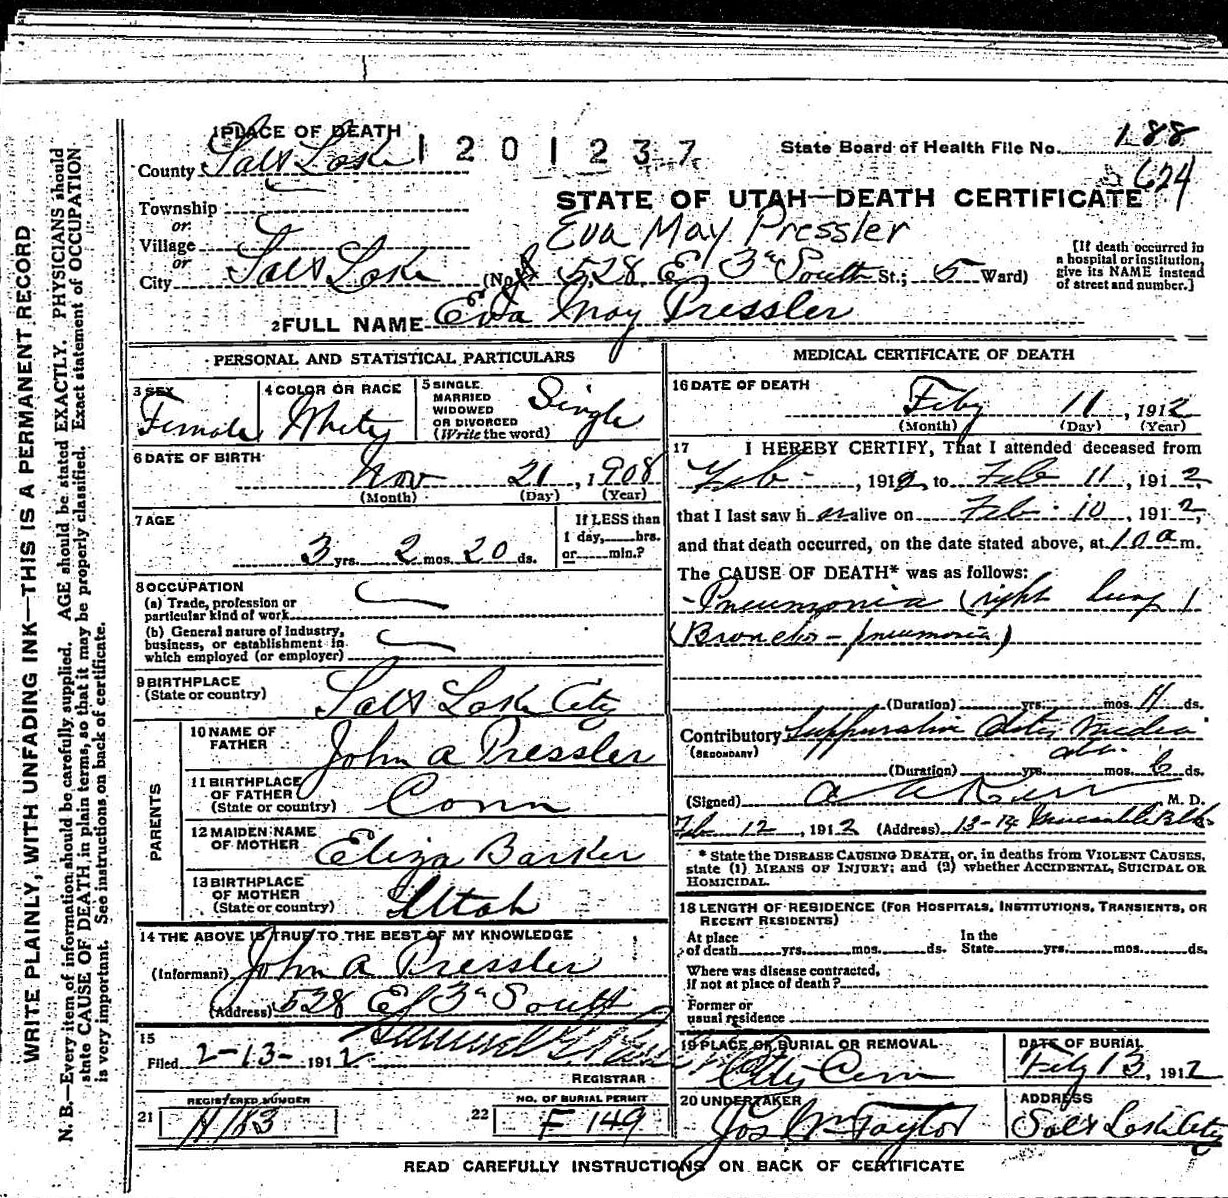 1 PLACE OF DEATH
County Salt Lake
1201237
State Board of Health File No. 188
624
Township
or
Village
or
City Salt Lake
STATE OF UTAH—DEATH CERTIFICATE
Eva May Pressler
(No. 528 E 3d South St.; 5 Ward)
[If death occurred in
a hospital or institution,
give its NAME instead
of street and number.]
2 FULL NAME Eva May Pressler
PERSONAL AND STATISTICAL PARTICULARS
3 SEX
Female
4 COLOR OR RACE
White
5 SINGLE
MARRIED
WIDOWED
OR DIVORCED
(Write the word)
Single
6 DATE OF BIRTH
Nov 21, 1908
(Month) (Day) (Year)
7 AGE
3 yrs. 2 mos. 20 ds.
If LESS than
1 day, hrs.
or min.?
8 OCCUPATION
(a) Trade, profession or
particular kind of work
(b) General nature of industry,
business, or establishment in
which employed (or employer)
9 BIRTHPLACE
(State or country)
Salt Lake City
PARENTS
10 NAME OF
FATHER
John A Pressler
11 BIRTHPLACE
OF FATHER
(State or country)
Conn
12 MAIDEN NAME
OF MOTHER
Eliza Barker
13 BIRTHPLACE
OF MOTHER
(State or country)
Utah
14 THE ABOVE IS TRUE TO THE BEST OF MY KNOWLEDGE
(Informant) John A Pressler
(Address) 528 E 3d South
15
Filed 2-13-1912
REGISTRAR
REGISTERED NUMBER
21
NO. OF BURIAL PERMIT
22 F 149
MEDICAL CERTIFICATE OF DEATH
16 DATE OF DEATH
Feby 11, 1912
(Month) (Day) (Year)
17 I HEREBY CERTIFY, That I attended deceased from
Feb, 1912, to Feb 11, 1912,
that I last saw her alive on Feb. 10, 1912,
and that death occurred, on the date stated above, at 10 a m.
The CAUSE OF DEATH* was as follows:
Pneumonia (right lung)
(Broncho-pneumonia)
(Duration) yrs. mos. 11 ds.
Contributory Suppurative Otitis Media
(SECONDARY)
(Duration) yrs. mos. 6 ds.
(Signed) A A Kerr M. D.
Feb 12, 1912 (Address) 13-14 Mercantile Blk
* State the DISEASE CAUSING DEATH, or, in deaths from VIOLENT CAUSES,
state (1) MEANS OF INJURY; and (2) whether ACCIDENTAL, SUICIDAL OR
HOMICIDAL.
18 LENGTH OF RESIDENCE (FOR HOSPITALS, INSTITUTIONS, TRANSIENTS, OR
RECENT RESIDENTS)
At place
of death yrs. mos. ds.
In the
State yrs. mos. ds.
Where was disease contracted,
if not at place of death?
Former or
usual residence
19 PLACE OF BURIAL OR REMOVAL
City Cem
DATE OF BURIAL
Feby 13, 1912
20 UNDERTAKER
Jos Wm Taylor
ADDRESS
Salt Lake City
READ CAREFULLY INSTRUCTIONS ON BACK OF CERTIFICATE
WRITE PLAINLY, WITH UNFADING INK—THIS IS A PERMANENT RECORD
N. B.—Every item of information should be carefully supplied. AGE should be stated EXACTLY. PHYSICIANS should
state CAUSE OF DEATH in plain terms, so that it may be properly classified. Exact statement of OCCUPATION
is very important. See instructions on back of certificate.